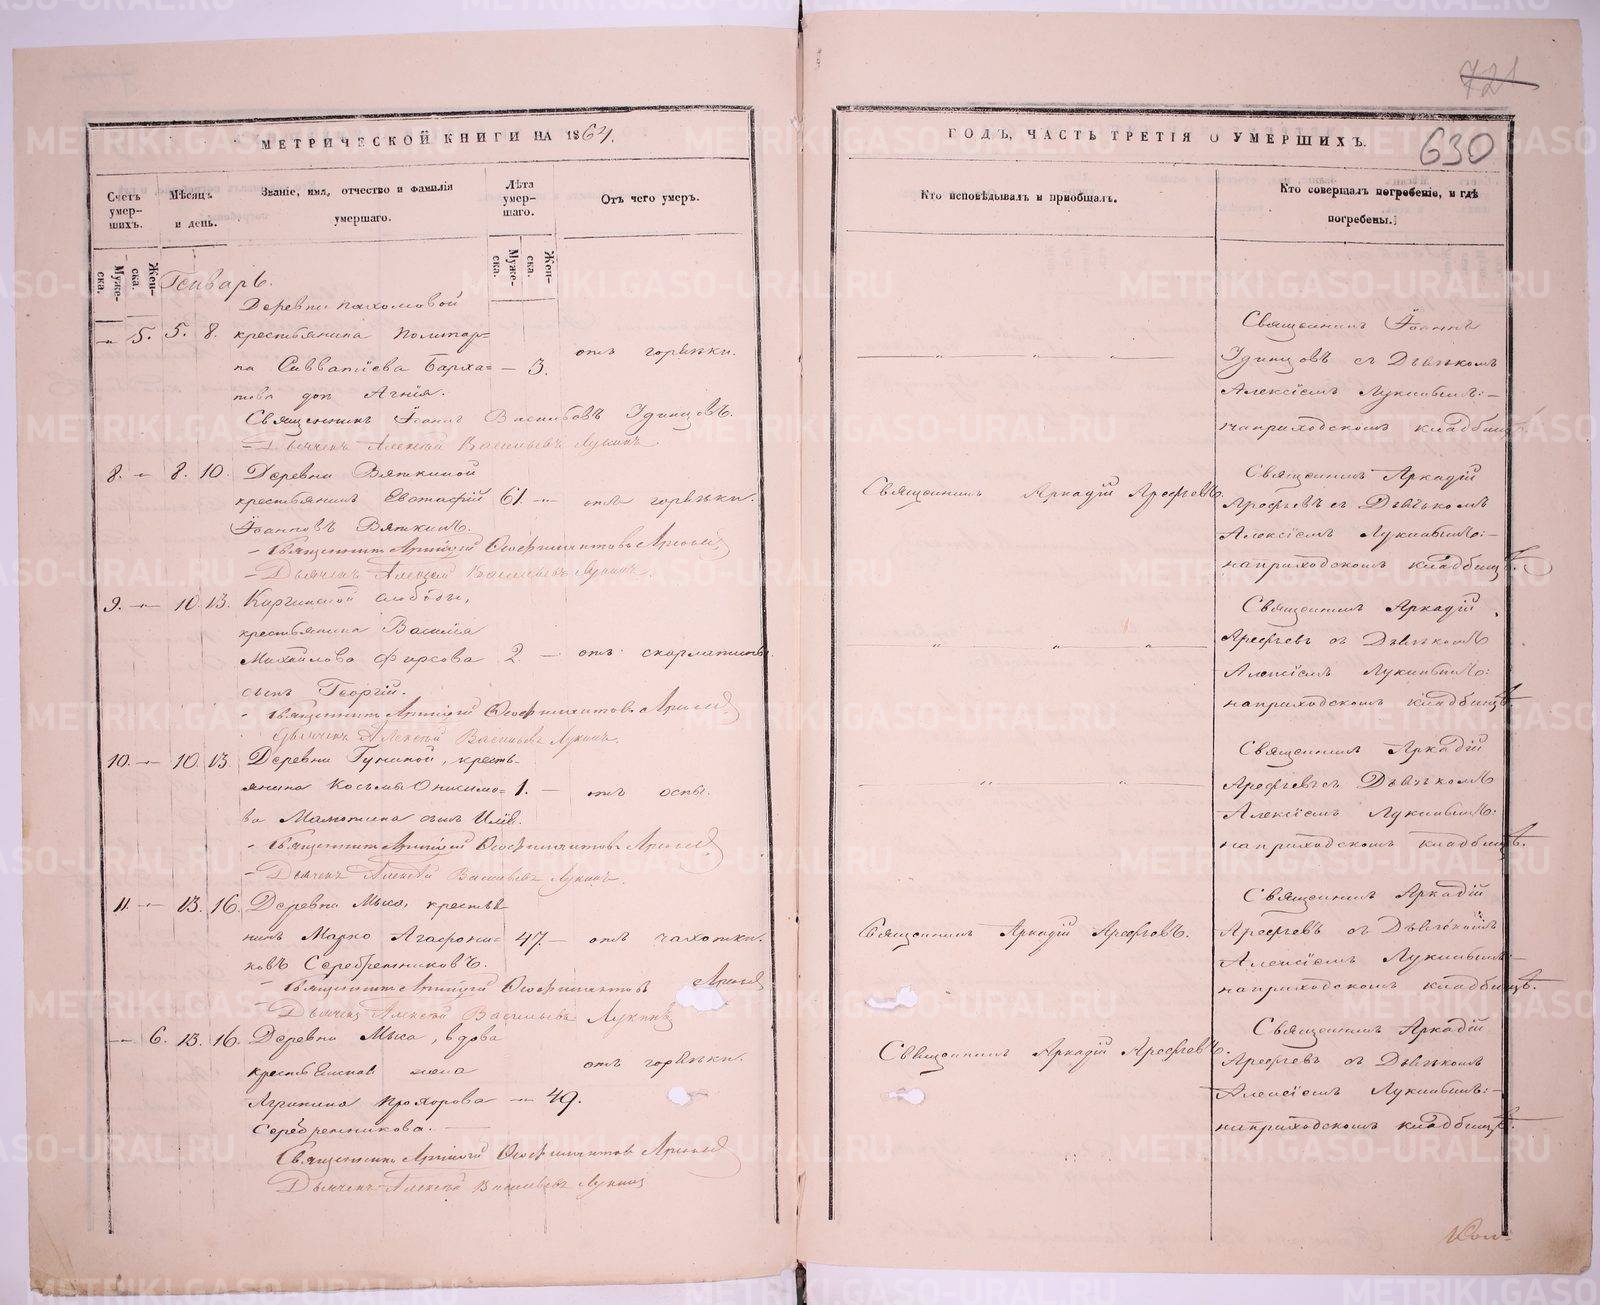 МЕТРИЧЕСКОЙ КНИГИ НА 1864.
Счетъ умер-шихъ.
Мѣсяцъ и день.
Званіе, имя, отчество и фамилія умершаго.
Лѣта умер-шаго.
Отъ чего умеръ.
Муже-ска.
Жен-ска.
Муже-ска.
Жен-ска.
Генварь.
Деревни Пахомовой
5. 5. 8. крестьянина
Савватіева Барха= — 3. отъ горячки.
това дочь Агнія.
Священникъ Іоаннъ Удинцовъ.
Дьячекъ Алексѣй Васильевъ Лукинъ
8. 8. 10. Деревни Вяткиной
крестьянинъ Евстафій 61. отъ горячки.
Іоанновъ Вяткинъ.
Священникъ Аркадій Арефьевъ
Дьячекъ Алексѣй Васильевъ Лукинъ.
9. 10. 13. слободы,
крестьянина Василія
Михайлова Фирсова 2. — отъ скарлатины
сынъ Георгій.
Священникъ Аркадій Арефьевъ
Дьячекъ Алексѣй Васильевъ Лукинъ.
10. 10. 13. Деревни Гуниной, кресть-
янина Косьмы Онисимо= 1. — отъ оспы.
ва сынъ Илія.
Священникъ Аркадій Арефьевъ
Дьячекъ Алексѣй Васильевъ Лукинъ.
11. 13. 16. Деревни Мыса, крестья
нинъ Марко Агафони= 47. — отъ чахотки.
ковъ Серебренниковъ.
Священникъ Аркадій Арефьевъ
Дьячекъ Алексѣй Васильевъ Лукинъ
6. 13. 16. Деревни Мыса, вдова
крестьянская жена отъ горячки.
Агрипина Прохорова 49.
Серебренникова.
Священникъ Аркадій Арефьевъ
Дьячекъ Алексѣй Васильевъ Лукинъ
721
ГОДЪ, ЧАСТЬ ТРЕТІЯ О УМЕРШИХЪ.
630
Кто исповѣдывалъ и пріобщалъ.
Кто совершалъ погребеніе, и гдѣ погребены.
Священникъ Іоаннъ
Удинцовъ съ Дьячкомъ
Алексіемъ Лукинымъ:—
на приходскомъ кладбищѣ.
Священникъ Аркадій Арефьевъ.
Священникъ Аркадій
Арефьевъ съ Дьячкомъ
Алексіемъ Лукинымъ:—
на приходскомъ кладбищѣ.
Священникъ Аркадій
Арефьевъ съ Дьячкомъ
Алексіемъ Лукинымъ:
на приходскомъ кладбищѣ.
Священникъ Аркадій
Арефьевъ съ Дьячкомъ
Алексіемъ Лукинымъ:
на приходскомъ кладбищѣ.
Священникъ Аркадій Арефьевъ.
Священникъ Аркадій
Арефьевъ съ Дьячкомъ
Алексіемъ Лукинымъ:—
на приходскомъ кладбищѣ.
Священникъ Аркадій Арефьевъ.
Священникъ Аркадій
Арефьевъ съ Дьячкомъ
Алексіемъ Лукинымъ:—
на приходскомъ кладбищѣ.
METRIKI.GASO-URAL.RU